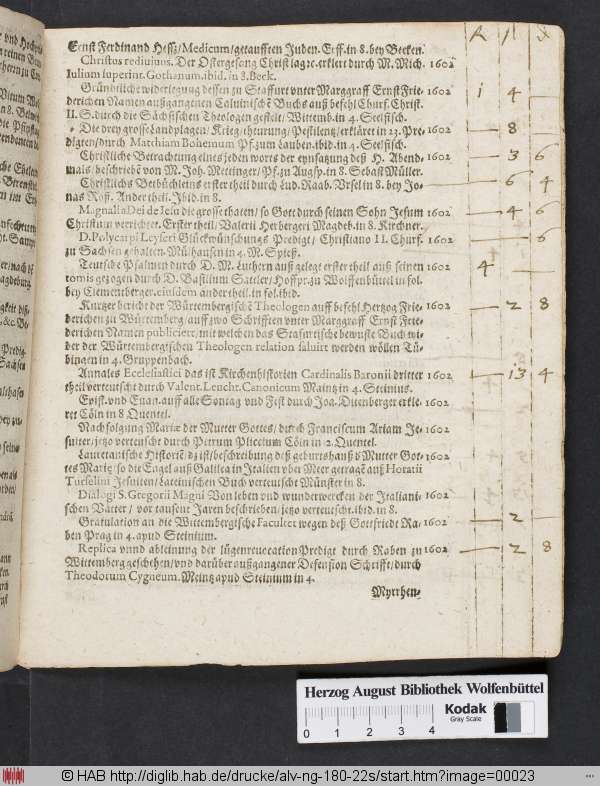 R fl d
Ernst Ferdinand Hessz/Medicum/getaufften Juden. Erff.in 8. bey Becken.
Christus rediuiuus. Der Ostergesang Christ lag ec.erklert durch M. Mich. 1602
Iulium superint. Gothanum.ibid. in 8. Beck.
Gründtliche widerlegung dessen zu Staffurt vnter Marggraff Ernst Frie- 1602 1 4 —
derichen Namen außgangenen Caluinischẽ Buchs auß befehl Churf. Christ.
II. S. durch die Sächsischen Theologen gestelt/ Wittemb. in 4. Seelfisch.
Die drey grosse Landplagen/ Krieg/thewrung/ Pestilentz/erkläret in 23. Pre- 1602 — 8 —
digten/durch Matthiam Bohemum Pf. zum Lauben.ibid.in 4. Seelfisch.
Christliche Betrachtung eines jeden worts der eynsatzung deß H. Abend- 1602 — 3 6
mals/beschriebẽ von M. Joh. Mettinger/ Pf. zu Augsp. in 8. Sebast Müller.
Christlichs Betbüchleins erster theil durch Lud. Raab. Vrsel in 8. bey Jo- 1602 — 6 4
nas Ross. Ander theil. Ibid. in 8.
Magnalia Dei de Iesu die grosse thaten/ so Gott durch seinen Sohn Jesum 1602 — 4 6
Christum verrichtet. Erster theil/ Valerij Herbergeri Magdeb. in 8. Kirchner.
D. Polycarpi Leyseri Glückwünschungs Predigt/ Christiano II. Churf. 1602 — — 6
zu Sachsen gehalten. Mülhausen in 4. M. Spieß.
Teutsche Psalmen durch D. M. Luthern auß gelegt erster theil auß seinen 1602 4 —
tomis gezogen durch D. Basilium Sattler/ Hoffpr. zu Wolffenbüttel in fol.
bey Clement berger.eiusdem ander theil. in fol. ibid.
Kurtzer bericht der Würtembergischẽ Theologen auff befehl Hertzog Frie- 1602 — 2 8
derichen zu Würtemberg/ auff zwo Schrifften vnter Marggraff Ernst Frie-
derichen Namen publiciert, mit welchen das Stafurtische bewuste Buch wi-
der der Würtembergischen Theologen relation saluirt werden wöllen Tü-
bingen in 4. Gruppenbach.
Annales Ecclesiastici das ist Kirchenhistorien Cardinalis Baronii dritter 1602 — 13 4
theil verteutscht durch Valent. Leucht. Canonicum Maintz in 4. Steinius.
Epist. vnd Euan. auff alle Sontag vnd Fest durch Joa. Ditenberger erkle- 1602
ret Cöln in 8 Quentel.
Nachfolgung Mariæ der Mutter Gottes/ durch Franciscum Ariam Je- 1602
suiter/ jetzo verteutscht durch Petrum Plicetium Cöln in 12. Quentel.
Lauretanische Historiẽ/ dz ist/beschreibung deß geburtshauß d' Mutter Got- 1602
tes Marię/ so die Engel auß Galilea in Italien vber Meer getragẽ auß Horatii
Tursellini Jesuiten/ Lateinischen Buch verteutscht Münster in 8.
Dialogi S. Gregorii Magni Von leben vnd wunderwercken der Italiani- 1602
schen Vätter/ vor tausent Jaren beschrieben/ jetzo verteutscht.ibid. in 8.
Gratulation an die Wittembergische Facultet wegen deß Gottfriedt Ra- 1602 — 2 —
ben Prag in 4. apud Steinium.
Replica vnnd ableinung der lügenreuocation Predigt durch Raben zu 1602 — 2 8
Wittemberg geschehen/vnd darüber außgangener Defension Schrifft/ durch
Theodorum Cygneum. Meintz apud Steinium in 4.
Myrrhen-
Herzog August Bibliothek Wolfenbüttel
0 1 2 3 4
Kodak
Gray Scale
© HAB http://diglib.hab.de/drucke/alv-ng-180-22s/start.htm?image=00023